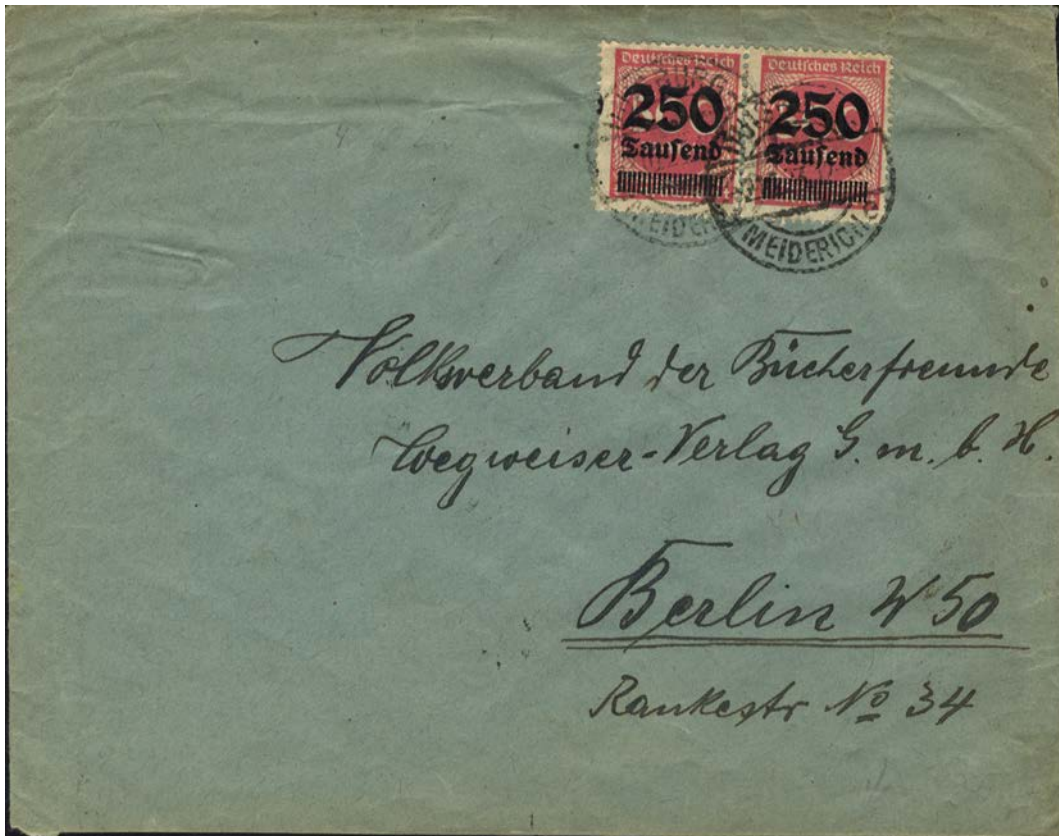 Deutsches Reich
250
Tausend
Deutsches Reich
250
Tausend
MEIDERICH
Volksverband der Bücherfreunde
Wegweiser-Verlag G. m. b. H.
Berlin W 50
Rankestr No 34